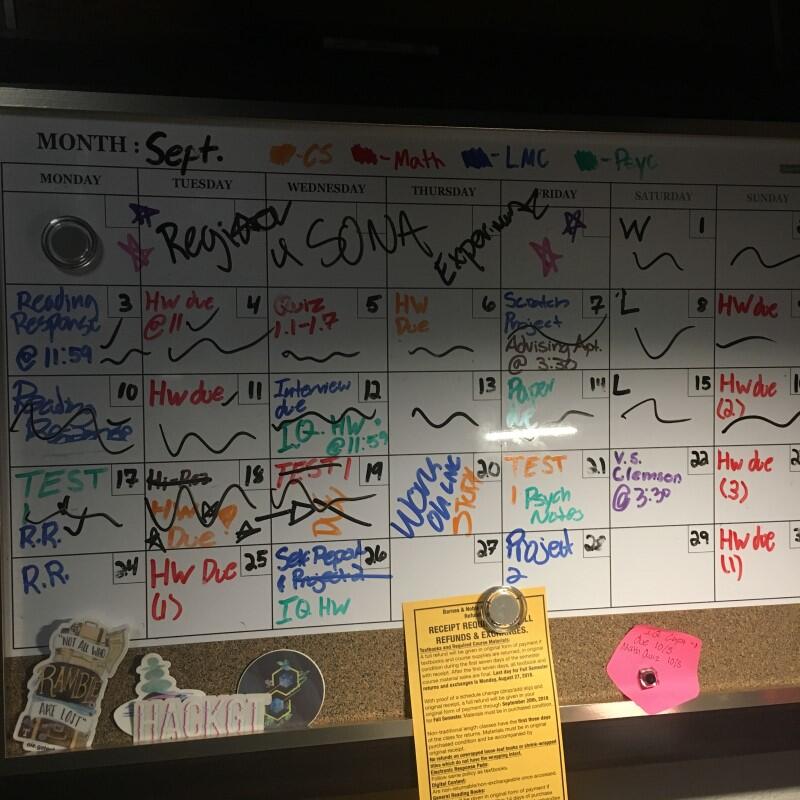 MONTH: Sept. -CS -Math -LMC -Psyc
MONDAY TUESDAY WEDNESDAY THURSDAY FRIDAY SATURDAY SUNDAY
Register 4 SONA Experiment
W 1
Reading Response @ 11:59 3
HW due @ 11 4
Quiz 1.1-1.7 5
HW Due 6
Scratch Project 7
Advising Apt. @ 3:30
L 8
HW due
Reading Response 10
HW due 11
Interview due 12
IQ HW @ 11:59
13
Paper due 14
L 15
HW due (2)
TEST 1 17
R.R.
18
HW Due
TEST 1 19
Work on LMC 20
STUDY
TEST 1 21
Psych Notes
V.S. Clemson @ 3:30 22
HW due (3)
R.R. 24
HW Due (1) 25
Self Report & Project 2 26
IQ HW
27
Project 2 28
29
HW due (1)
"NOT ALL WHO
RAMBLE
ARE LOST"
HACKGT
Barnes & Noble
REFUNDS & EXCHANGES.
Textbooks and Required Course Materials:
A full refund will be given in original form of payment if
textbooks and course supplies are returned, in original
condition during the first seven days of the semester
with receipt. After the first seven days, all textbook and
course material sales are final. Last day for Fall Semester
returns and exchanges is Monday, August 27, 2018.
With proof of a schedule change (drop/add slip) and
original receipt, a full refund will be given in your
original form of payment through September 20th, 2018
for Fall Semester. Materials must be in purchased condition.
Non-traditional length classes have the first three days
of the class for returns. Materials must be in original
purchased condition and be accompanied by
original receipt.
No refunds on unwrapped loose-leaf books or shrink-wrapped
titles which do not have the wrapping intact.
Electronic Response Pads:
Follow same policy as textbooks.
Digital Content:
Are non-returnable/non-exchangeable once accessed.
General Reading Books:
Due 10/3
Math Quiz 10/3